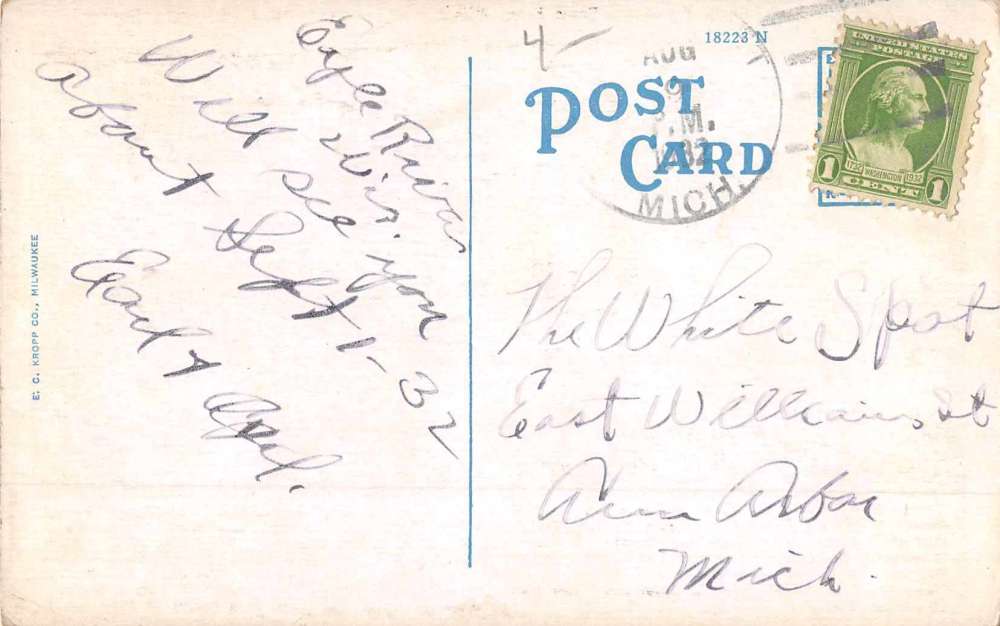 18223 N
4-
POST
CARD
AUG
9
P.M.
1932
MICH.
UNITED STATES
POSTAGE
1732 WASHINGTON 1932
1 CENT 1
Eagle River
Wis.
Will see you
about Sept 1-32
Earl &
The White Spot
East William St
Ann Arbor
Mich.
E. C. KROPP CO., MILWAUKEE